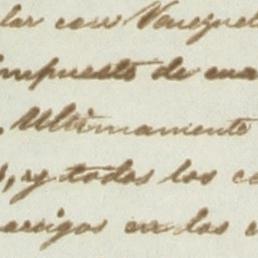 lar con Venezuel
impuesto de cua
Ultimamente
, y todos los co
amigos en los e